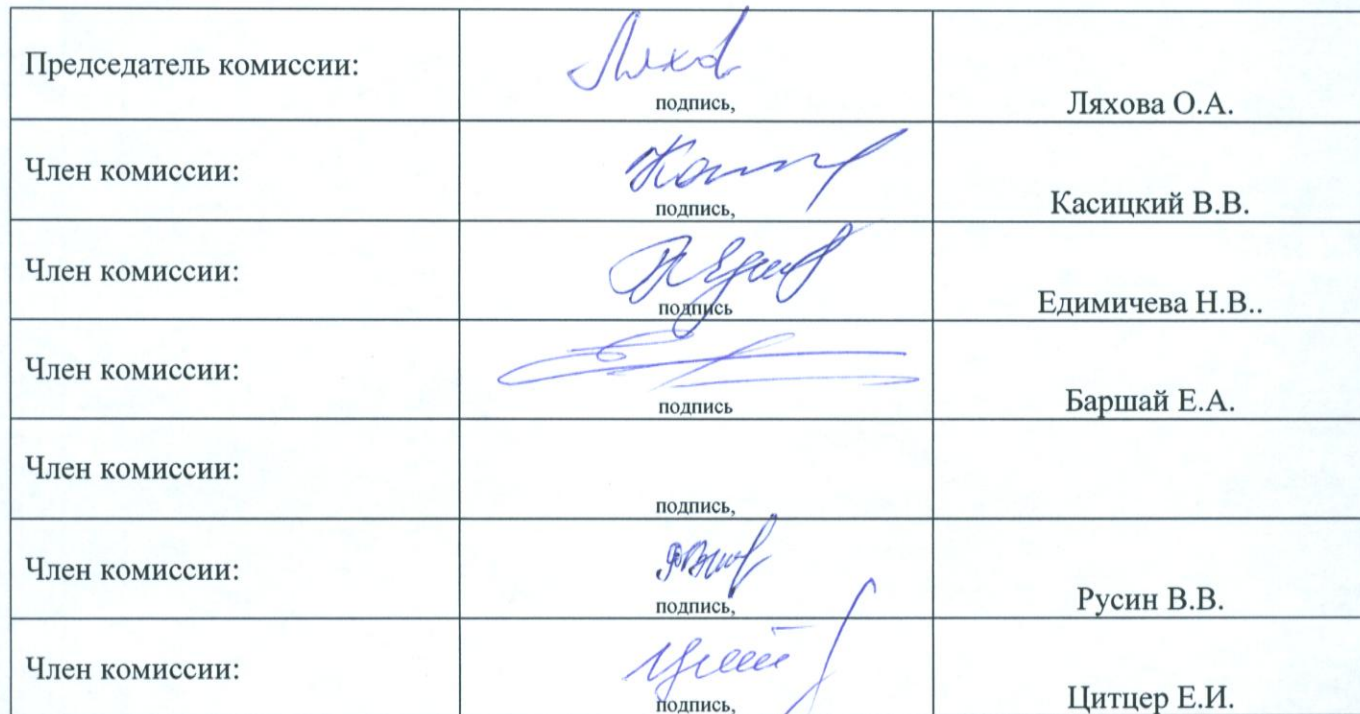 Председатель комиссии:
подпись,
Ляхова О.А.
Член комиссии:
подпись,
Касицкий В.В.
Член комиссии:
подпись
Едимичева Н.В..
Член комиссии:
подпись
Баршай Е.А.
Член комиссии:
подпись,
Член комиссии:
подпись,
Русин В.В.
Член комиссии:
подпись,
Цитцер Е.И.